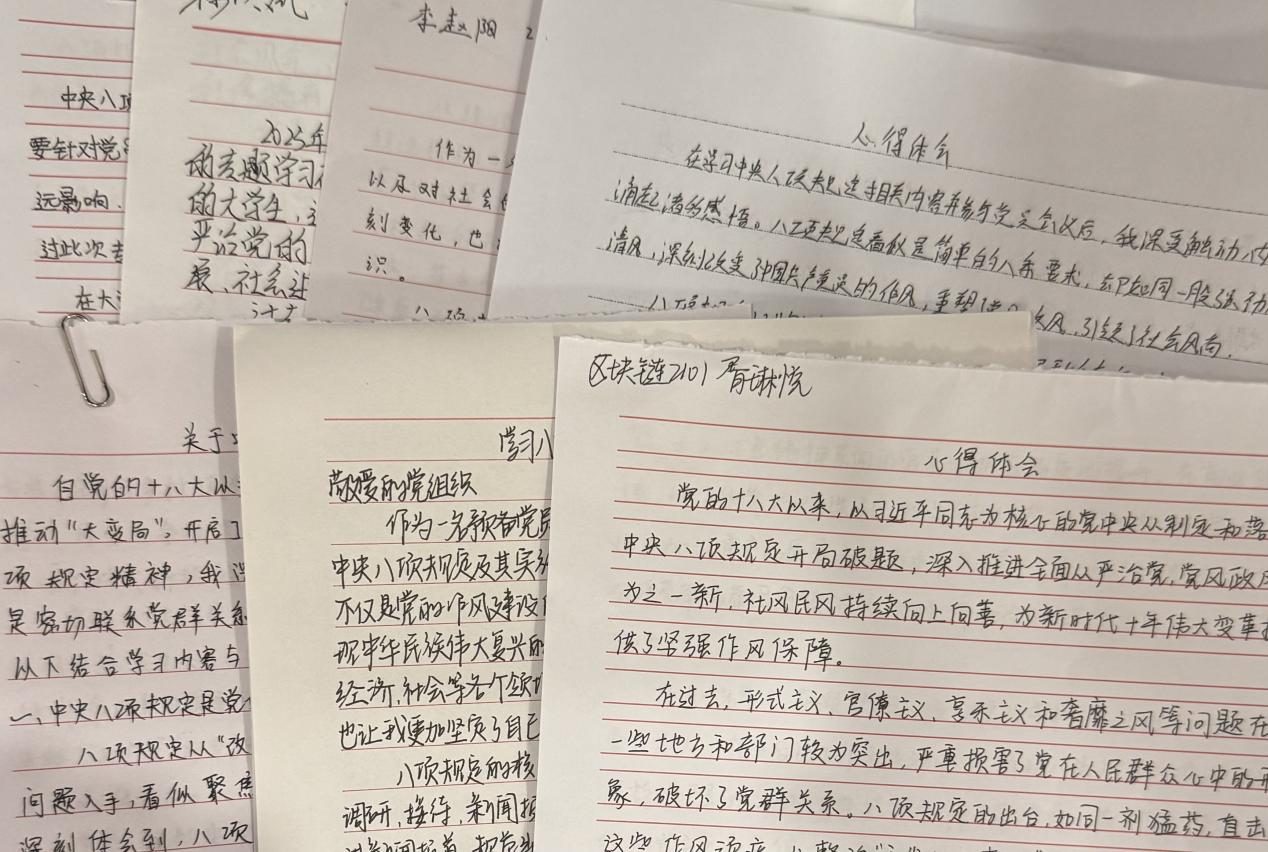 中央八项
要针对党
远影响.
过此次
在大
2025年
的专题学习
的大学生,
严治党的
展、社会进
李赵阳
作为一
以及对社会
刻变化,也
识。
八项
心得体会
在学习中央八项规定相关内容并参与党员会议后,我深受触动,内
涌起诸多感悟。八项规定看似是简单的八条要求,却如同一股强劲
清风,深刻改变了中国共产党党的作风,重塑
风,引领了社会风向.
关于
自党的十八大以
推动“大变局”,开启
项规定精神,我
是密切联系党群关系
以下结合学习内容与
一、中央八项规定是党
八项规定从“改
问题入手,看似聚焦
深刻体会到,八项
学习八
敬爱的党组织
作为一名预备党员
中央八项规定及其实
不仅是党的作风建设
现中华民族伟大复兴的
经济、社会等各个领域
也让我更加坚定了自己
八项规定的核
调研、接待、新闻报
区块链2101 胥琳悦
心得体会
党的十八大以来,以习近平同志为核心的党中央从制定和落
中央八项规定开局破题,深入推进全面从严治党,党风政风
为之一新,社风民风持续向上向善,为新时代十年伟大变革提
供了坚强作风保障。
在过去,形式主义、官僚主义、享乐主义和奢靡之风等问题在
一些地方和部门较为突出,严重损害了党在人民群众心中的形
象,破坏了党群关系。八项规定的出台,如同一剂猛药,直击
这些作风顽疾